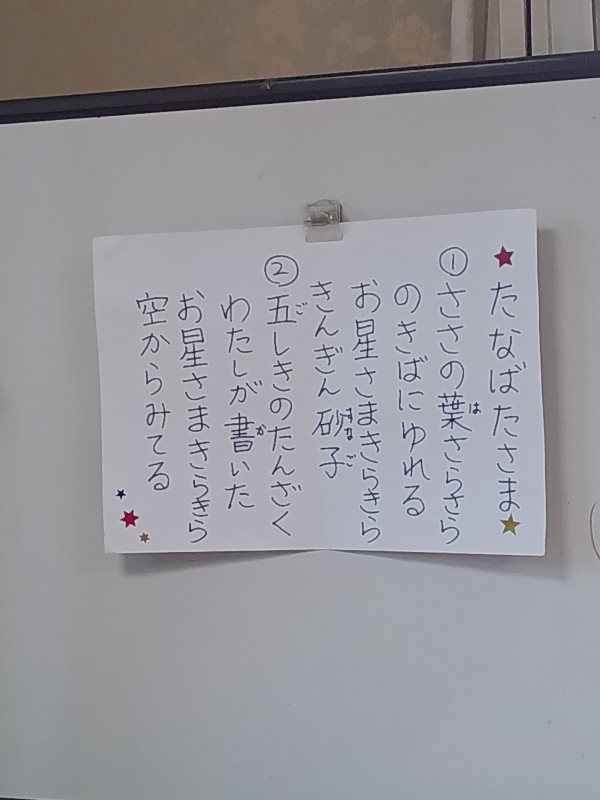 たなばたさま
①ささの葉さらさら
のきばにゆれる
お星さまきらきら
きんぎん砂子
②五しきのたんざく
わたしが書いた
お星さまきらきら
空からみてる